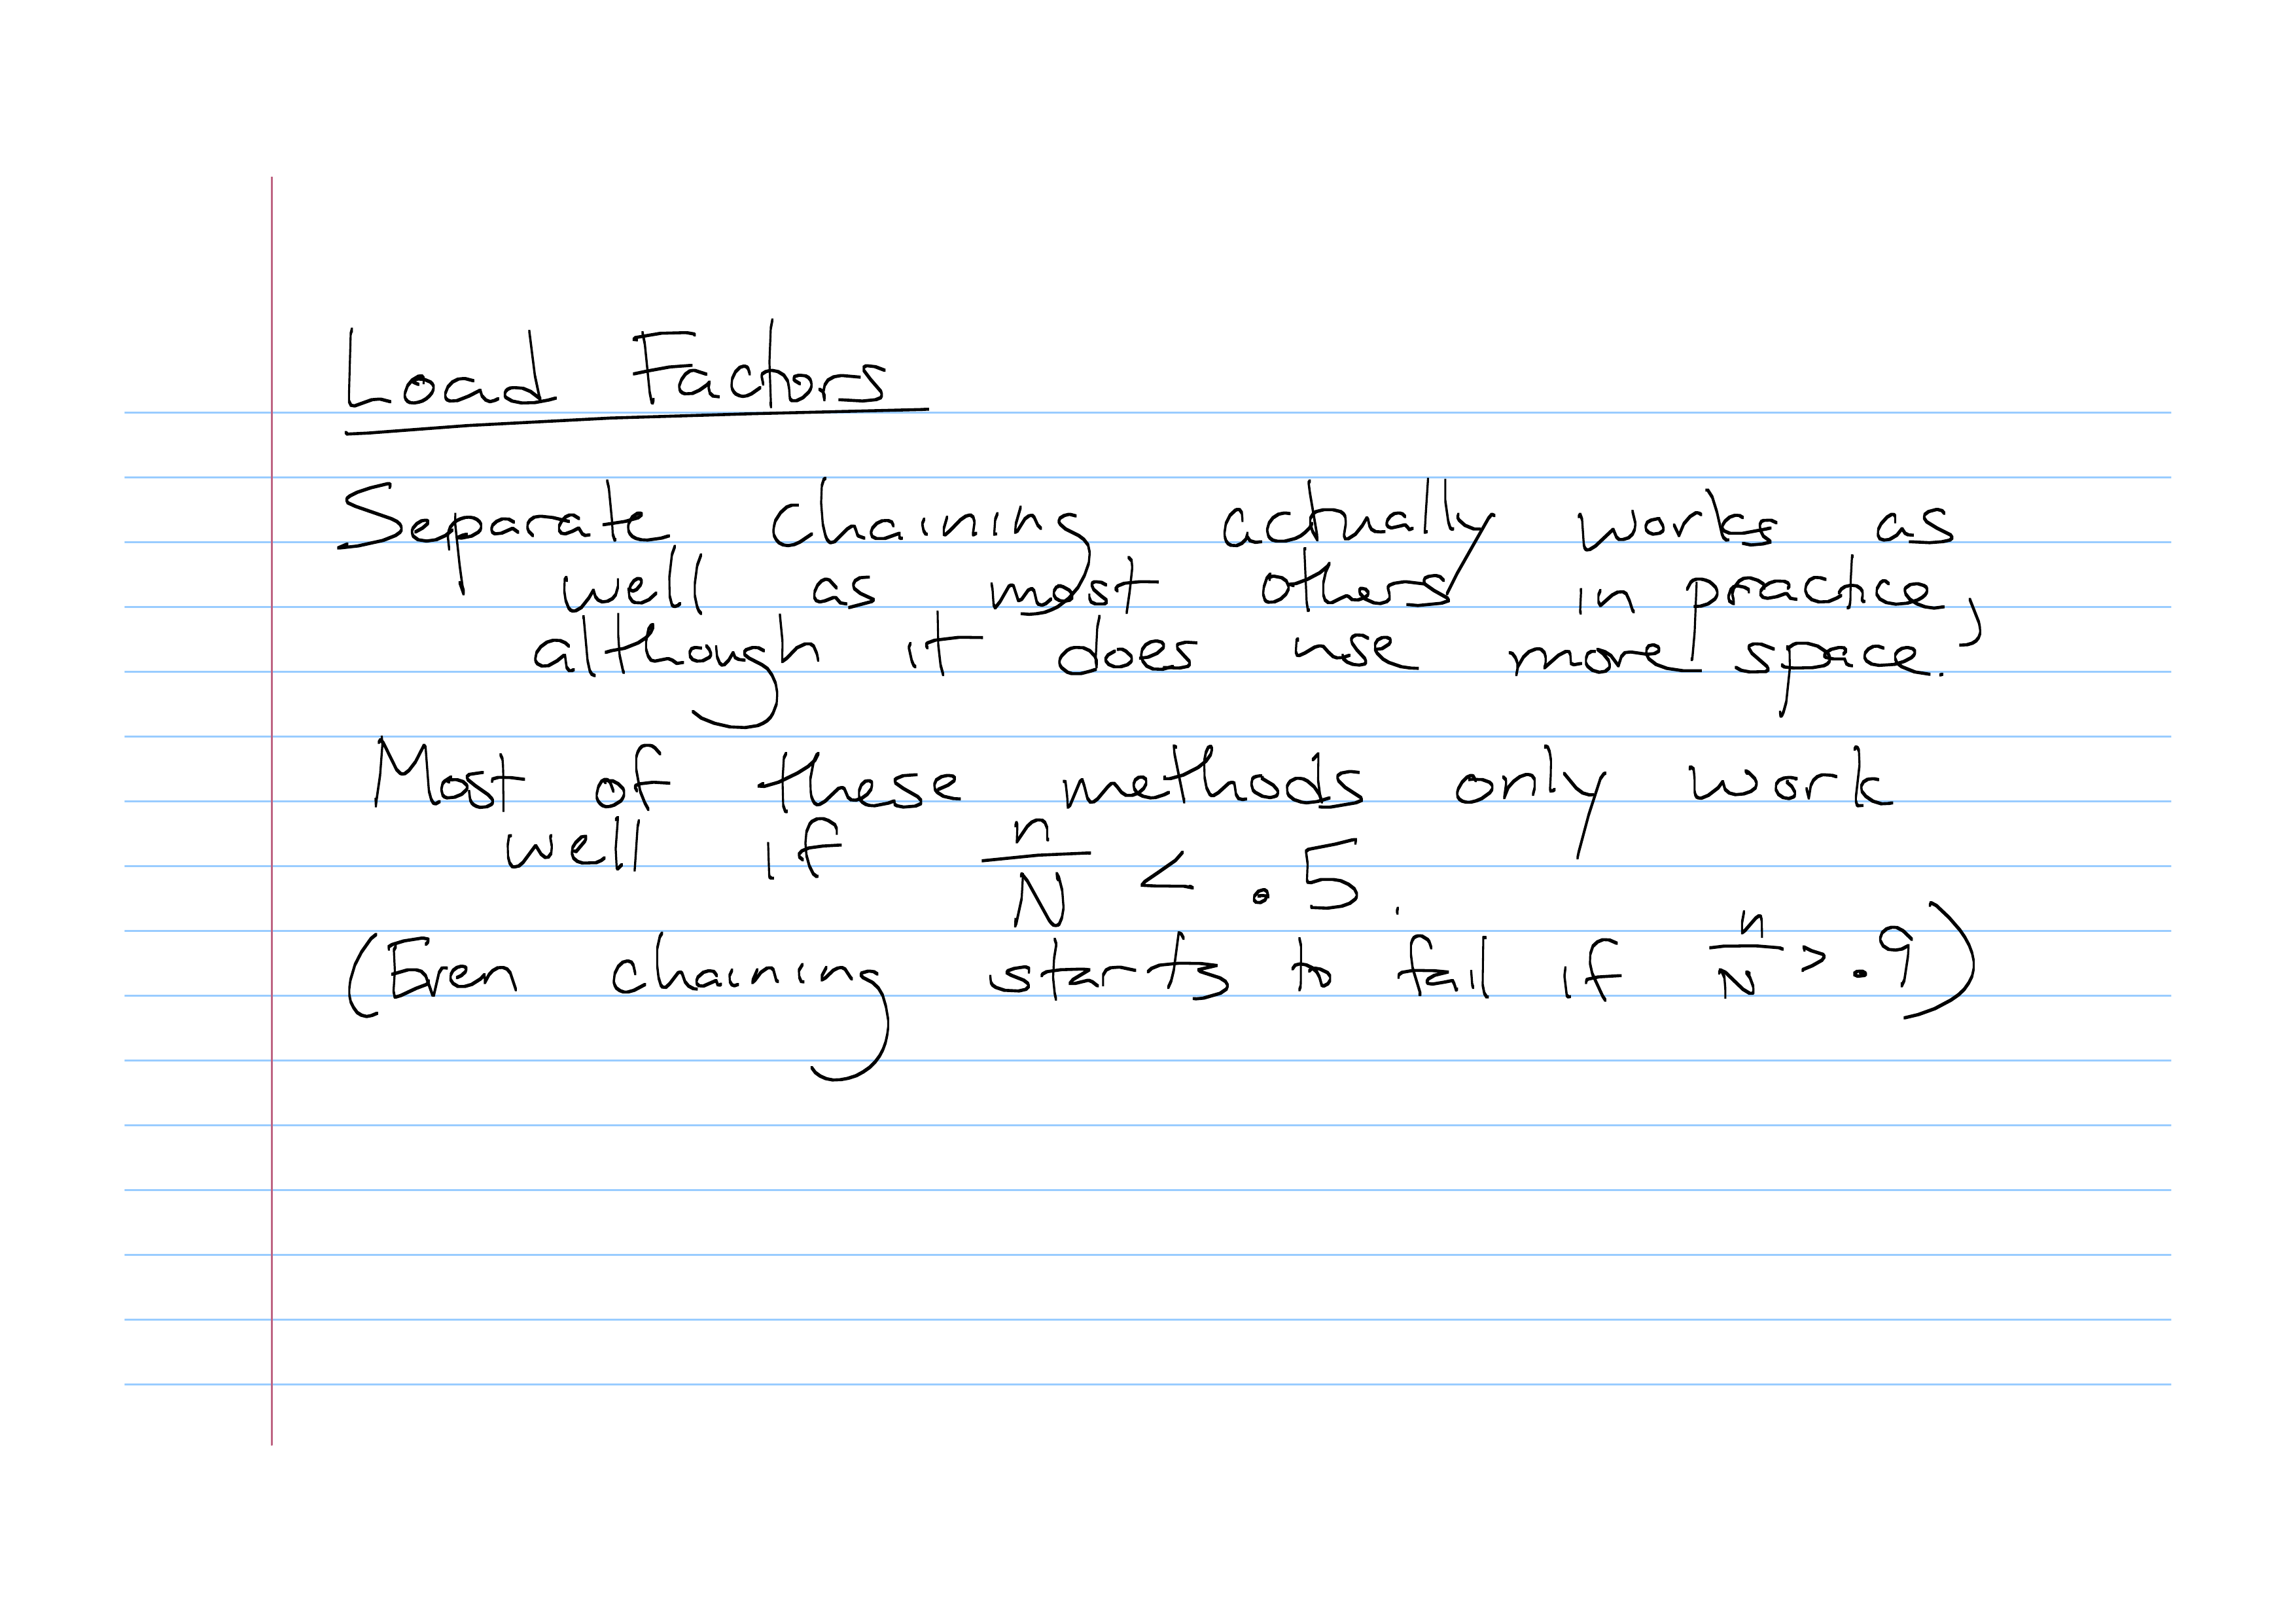 Load Factors
Separate chaining actually works as
well as most others in practice,
although it does use more space.
Most of these methods only work
well if n/N < .5.
(Even chaining starts to fail if n/N > .9)